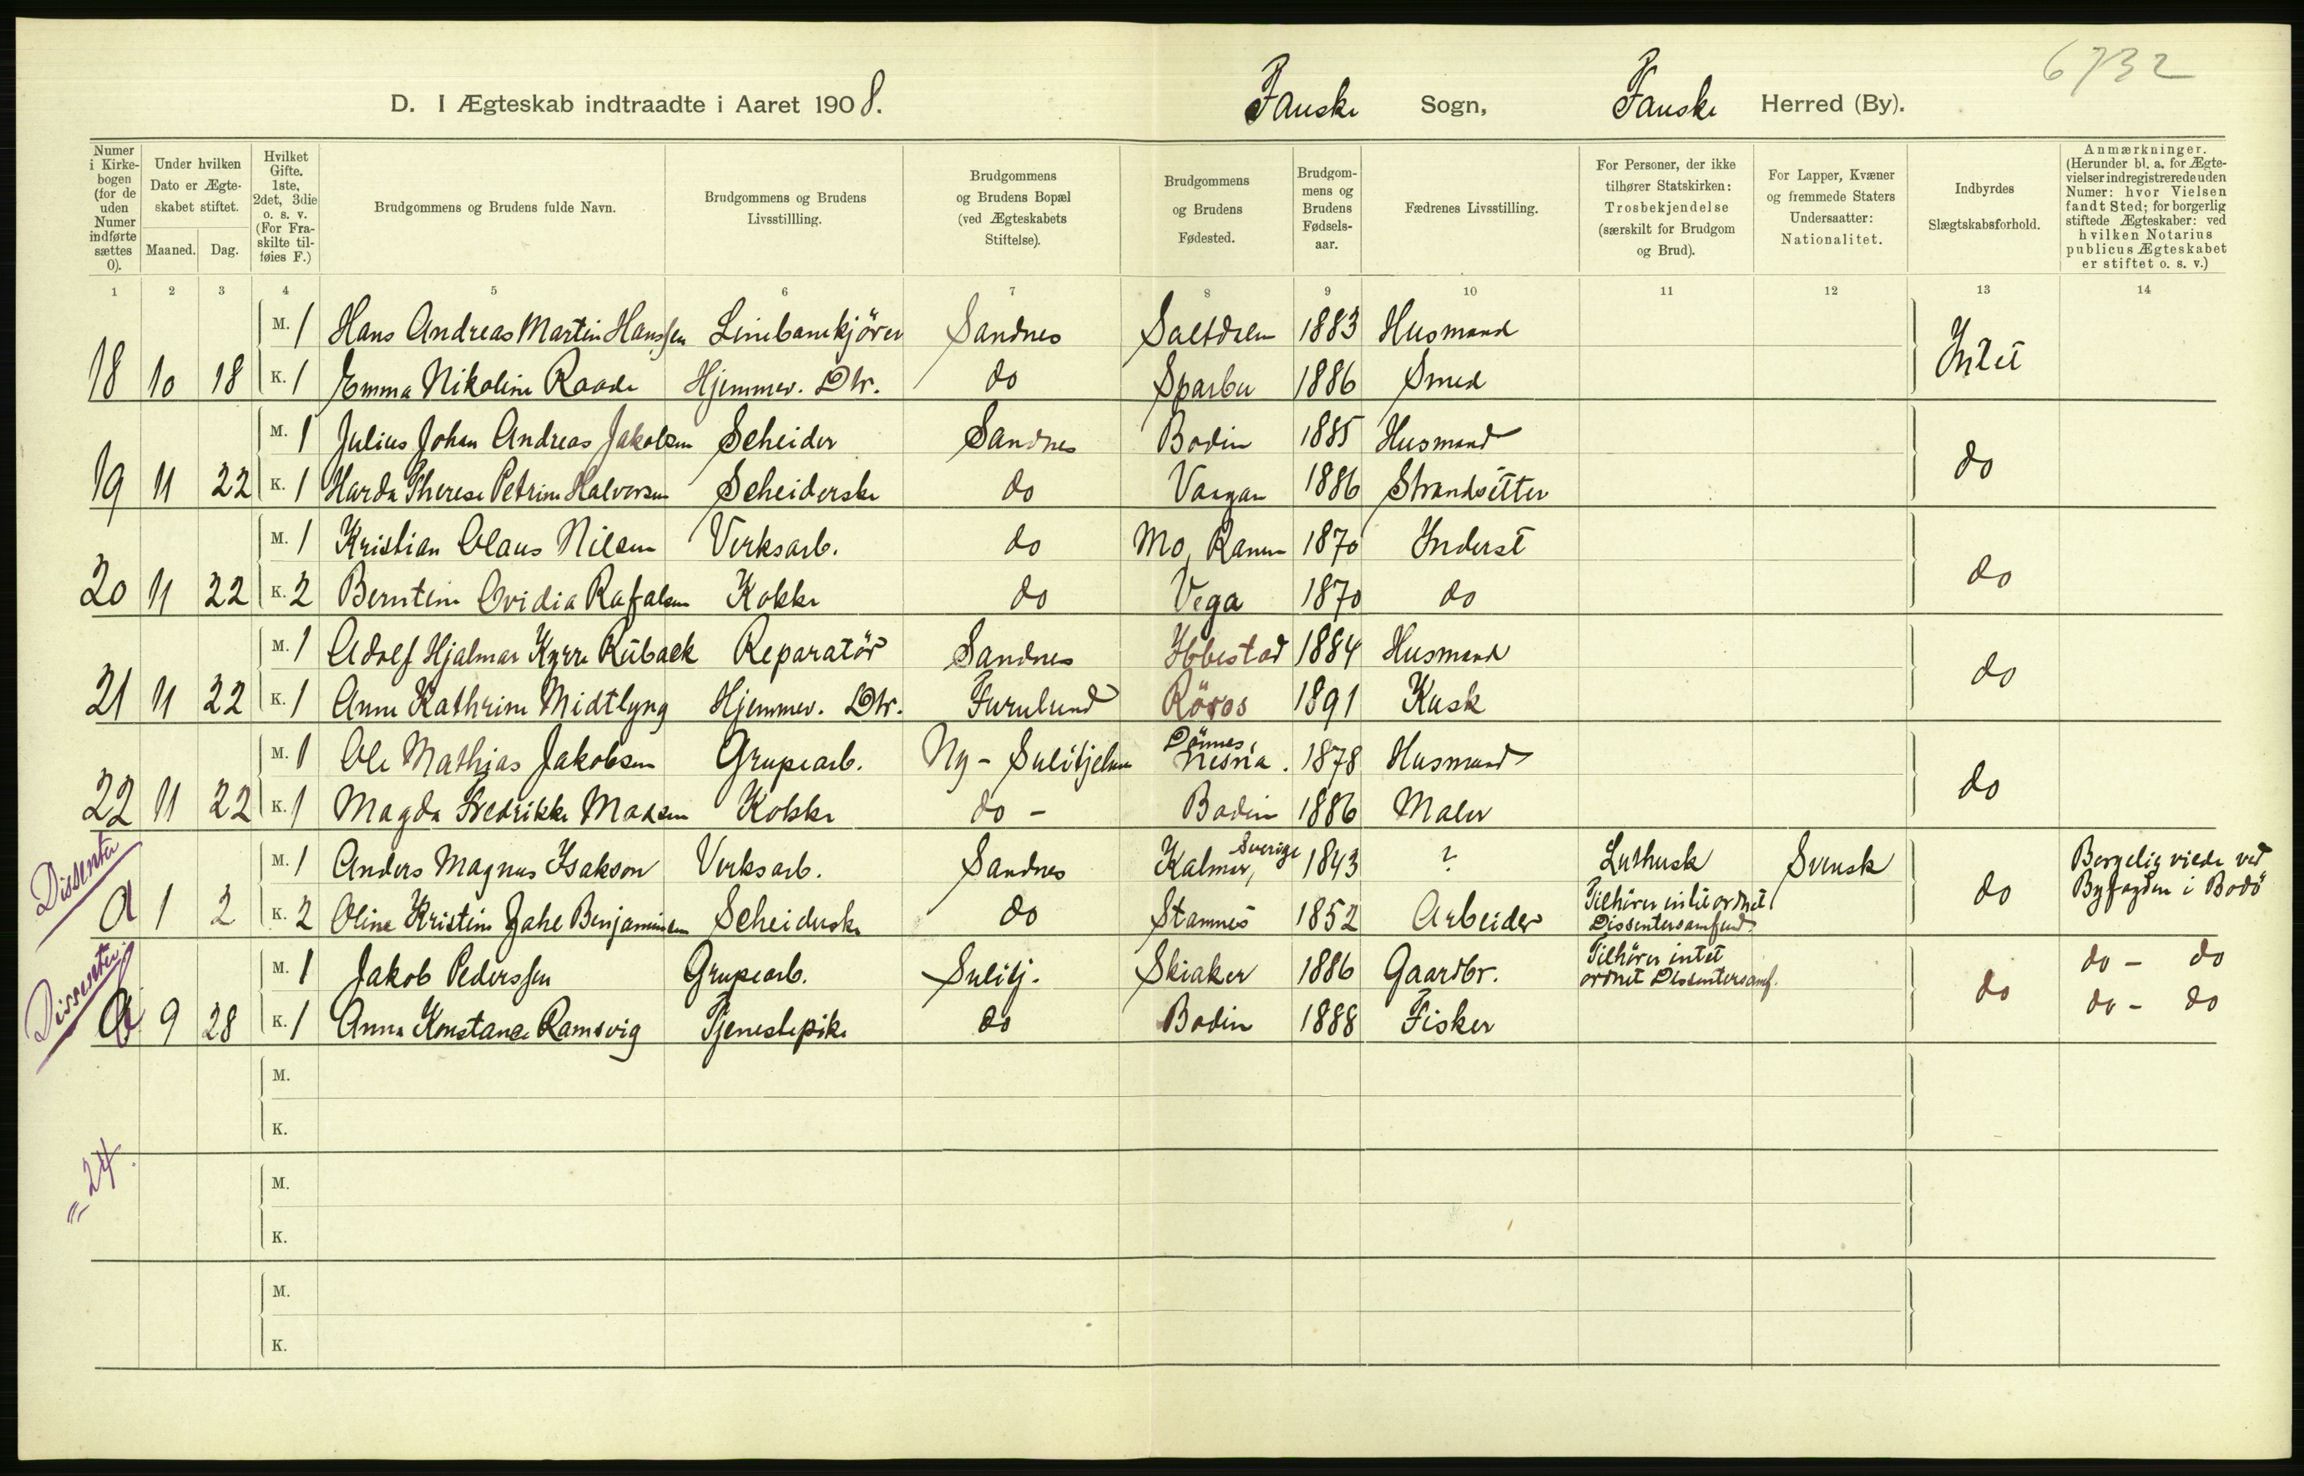 6732
D. I Ægteskab indtraadte i Aaret 1908. Fauske Sogn, Fauske Herred (By).
Numer i Kirkebogen (for de uden Numer indførte sættes 0).
Under hvilken Dato er Ægteskabet stiftet.
Maaned. Dag.
Hvilket Gifte. 1ste, 2det, 3die o. s. v. (For Fraskilte tilføies F.)
Brudgommens og Brudens fulde Navn.
Brudgommens og Brudens Livsstillling.
Brudgommens og Brudens Bopæl (ved Ægteskabets Stiftelse).
Brudgommens og Brudens Fødested.
Brudgommens og Brudens Fødselsaar.
Fædrenes Livsstilling.
For Personer, der ikke tilhører Statskirken: Trosbekjendelse (særskilt for Brudgom og Brud).
For Lapper, Kvæner og fremmede Staters Undersaatter: Nationalitet.
Indbyrdes Slægtskabsforhold.
Anmærkninger. (Herunder bl. a. for Ægtevielser indregistrerede uden Numer: hvor Vielsen fandt Sted; for borgerlig stiftede Ægteskaber: ved hvilken Notarius publicus Ægteskabet er stiftet o. s. v.)
1 2 3 4 5 6 7 8 9 10 11 12 13 14
M. 1 Hans Andreas Martin Hanssen Linebanekjörer Sandnes Saltdalen 1883 Husmand
18 10 18 K. 1 Emma Nikoline Raade Hjemmev. Dtr. do Sparbu 1886 Smed Intet
M. 1 Julius Johan Andreas Jakobsen Scheider Sandnes Bodin 1885 Husmand
19 11 22 K. 1 Harda Therese Petrine Halvorsen Scheiderske do Vaagan 1886 Strandsitter do
M. 1 Kristian Olaus Nilsen Verksarb. do Mo, Ranen 1870 Inderst
20 11 22 K. 2 Berntine Ovidia Rafalsen Kokke do Vega 1870 do do
M. 1 Adolf Hjalmar Kyrre Rübaek Reparatör Sandnes Ibbestad 1884 Husmand
21 11 22 K. 1 Anne Kathrine Midtlyng Hjemmev. Dtr. Furulund Röros 1891 Kusk do
M. 1 Ole Mathias Jakobsen Grupearb. Ny-Sulitjelma Dönnes, Nesna. 1878 Husmand
22 11 22 K. 1 Magda Fredrikke Madsen Kokke do - Bodin 1886 Maler do
Dissenter
M. 1 Anders Magnus Isakson Verksarb. Sandnes Kalmer, Sverige 1843 ? Luthersk Svensk Borgelig viede ved
a 1 2 K. 2 Oline Kristine Jahe Benjaminsen Scheiderske do Stamnes 1852 Arbeider Tilhører intet ordnet Dissentersamfund do Byfogden i Bodö
Dissenter
M. 1 Jakob Pederssen Grupearb. Sulitj. Skiaker 1886 Gaardbr. Tilhører intet ordnet Dissentersamf. do - do
a 9 28 K. 1 Anna Konstance Ramsvig Tjenestepike do Bodin 1888 Fisker do do - do
M.
K.
= 24.
M.
K.
M.
K.